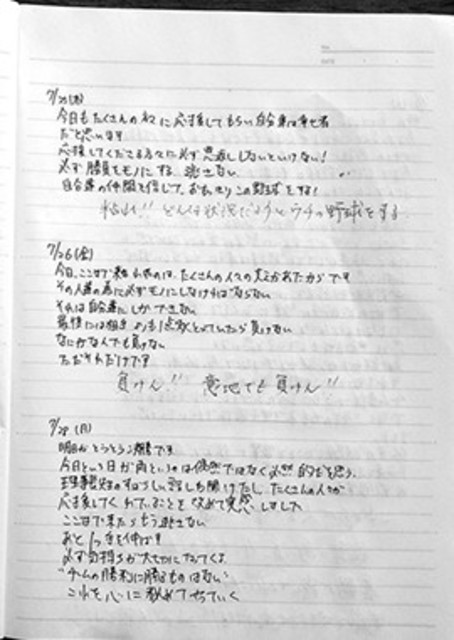 7/25(木)
今日もたくさんの方々に応援してもらい自分達は幸せ者
だと思います
応援してくださる方々に必ず恩返ししないといけない!
必ず勝負をモノにする 逃さない
自分達の仲間を信じて、おもいきりこの野球をする!
粘れ!! どんな状況だろうとウチの野球をする
7/26(金)
今日、ここまで来れたのは、たくさんの人の支えがあったからです
その人達の為に必ずモノにしなければならない
それは自分達にしかできない
最後には相手よりも1点多くとっていたら負けない
なにがなんでも負けない
ただそれだけです
負けん!! 意地でも負けん!!
7/28 (日)
明日がとうとう決勝です
今日という日が雨というのは偶然ではなく必然的だと思う
理事長先生のすばらしい話しも聞けたし、たくさんの人々が
応援してくれていることを改めて実感しました
ここまで来たらもう逃さない
あと1つ手を伸ばす
必ず気持ちが大切になってくる
"チームの勝利に勝るものはない"
これを心に秘めてやっていく